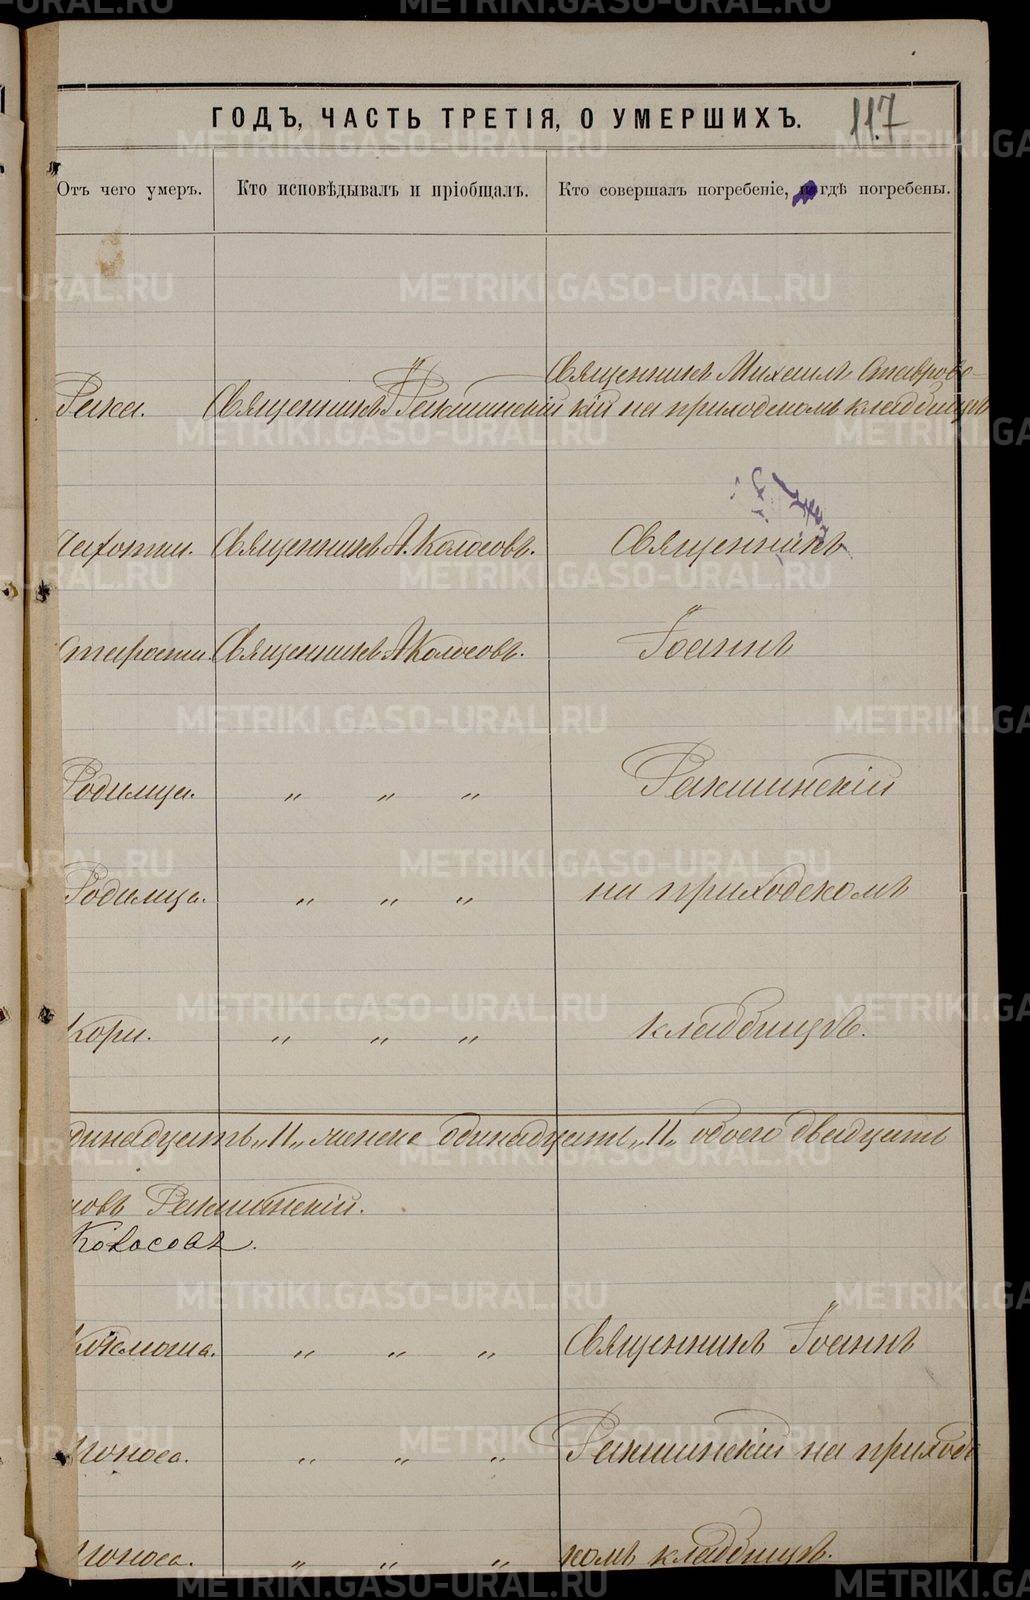 ГОДЪ, ЧАСТЬ ТРЕТІЯ, О УМЕРШИХЪ.
117
Отъ чего умеръ. Кто исповѣдывалъ и пріобщалъ. Кто совершалъ погребеніе, и гдѣ погребены.
Священникъ Михаилъ Ставровс-
Рака. Священникъ І. Ракшинскій кій на приходскомъ кладбищѣ
Чахотки. Священникъ А. Колосовъ. Священникъ
Старости. Священникъ А. Колосовъ. Іоаннъ
Родимца. " " " Ракшинскій
Родимца. " " " на приходскомъ
Кори. " " " кладбищѣ.
динадцать „11„ женска одинадцать „11„ обоего двадцать
новъ Ракшинскій.
Колосовъ.
Коклюша. " " " Священникъ Іоаннъ
Поноса. " " " Ракшинскій на приходс
Поноса. " " " комъ кладбищѣ.
METRIKI.GASO-URAL.RU